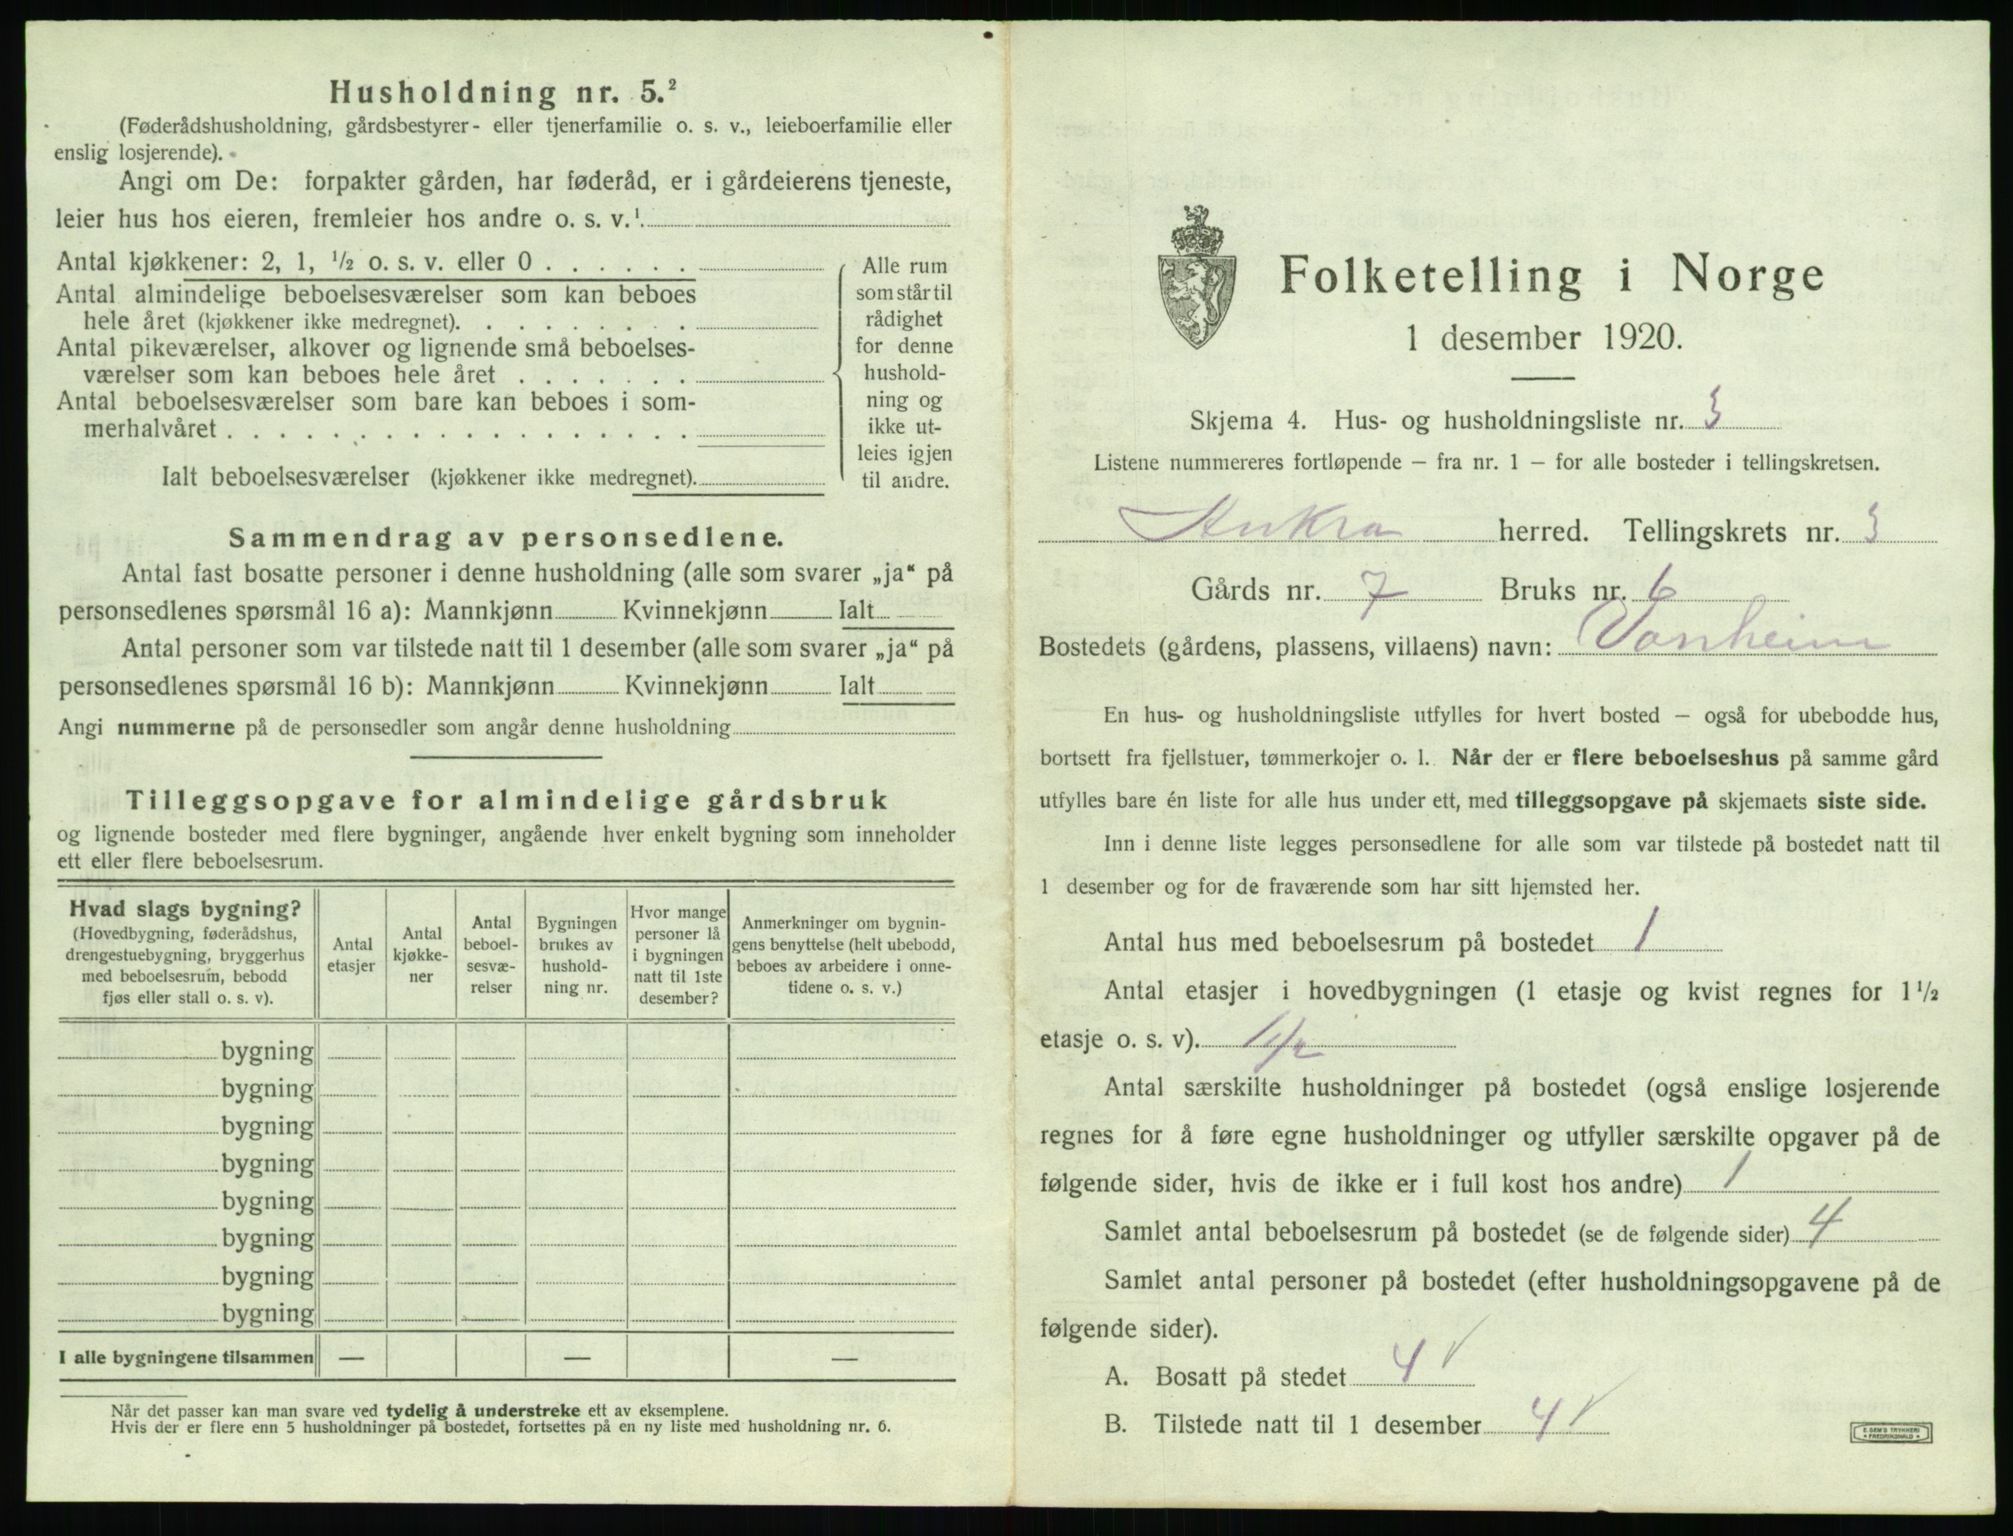 Husholdning nr. 5.²
(Føderådshusholdning, gårdsbestyrer- eller tjenerfamilie o. s. v., leieboerfamilie eller
enslig losjerende).
Angi om De: forpakter gården, har føderåd, er i gårdeierens tjeneste,
leier hus hos eieren, fremleier hos andre o. s. v.¹
Antal kjøkkener: 2, 1, ½ o. s. v. eller 0 . . . . . .
Antal almindelige beboelsesværelser som kan beboes
hele året (kjøkkener ikke medregnet). . . . . . . . .
Antal pikeværelser, alkover og lignende små beboelses-
værelser som kan beboes hele året . . . . . . .
Antal beboelsesværelser som bare kan beboes i som-
merhalvåret . . . . . . . . . . . . . . . . . .
Ialt beboelsesværelser (kjøkkener ikke medregnet).
Alle rum
som står til
rådighet
for denne
hushold-
ning og
ikke ut-
leies igjen
til andre.
Sammendrag av personsedlene.
Antal fast bosatte personer i denne husholdning (alle som svarer „ja“ på
personsedlenes spørsmål 16 a): Mannkjønn Kvinnekjønn Ialt
Antal personer som var tilstede natt til 1 desember (alle som svarer „ja“ på
personsedlenes spørsmål 16 b): Mannkjønn Kvinnekjønn Ialt
Angi nummerne på de personsedler som angår denne husholdning
Tilleggsopgave for almindelige gårdsbruk
og lignende bosteder med flere bygninger, angående hver enkelt bygning som inneholder
ett eller flere beboelsesrum.
Hvad slags bygning?
(Hovedbygning, føderådshus,
drengestuebygning, bryggerhus
med beboelsesrum, bebodd
fjøs eller stall o. s. v).
Antal
etasjer
Antal
kjøkke-
ner
Antal
beboel-
sesvæ-
relser
Bygningen
brukes av
hushold-
ning nr.
Hvor mange
personer lå
i bygningen
natt til 1ste
desember?
Anmerkninger om bygnin-
gens benyttelse (helt ubebodd,
beboes av arbeidere i onne-
tidene o. s. v.)
bygning
bygning
bygning
bygning
bygning
bygning
bygning
bygning
I alle bygningene tilsammen — — —
Når det passer kan man svare ved tydelig å understreke ett av eksemplene.
Hvis der er flere enn 5 husholdninger på bostedet, fortsettes på en ny liste med husholdning nr. 6.
Folketelling i Norge
1 desember 1920.
Skjema 4. Hus- og husholdningsliste nr. 3
Listene nummereres fortløpende – fra nr. 1 – for alle bosteder i tellingskretsen.
Aukra herred. Tellingskrets nr. 3
Gårds nr. 7 Bruks nr. 6
Bostedets (gårdens, plassens, villaens) navn: Vonheim
En hus- og husholdningsliste utfylles for hvert bosted – også for ubebodde hus,
bortsett fra fjellstuer, tømmerkojer o. l. Når der er flere beboelseshus på samme gård
utfylles bare én liste for alle hus under ett, med tilleggsopgave på skjemaets siste side.
Inn i denne liste legges personsedlene for alle som var tilstede på bostedet natt til
1 desember og for de fraværende som har sitt hjemsted her.
Antal hus med beboelsesrum på bostedet 1
Antal etasjer i hovedbygningen (1 etasje og kvist regnes for 1½
etasje o. s. v). 1½
Antal særskilte husholdninger på bostedet (også enslige losjerende
regnes for å føre egne husholdninger og utfyller særskilte opgaver på de
følgende sider, hvis de ikke er i full kost hos andre) 1
Samlet antal beboelsesrum på bostedet (se de følgende sider) 4
Samlet antal personer på bostedet (efter husholdningsopgavene på de
følgende sider).
A. Bosatt på stedet 4 ✓
B. Tilstede natt til 1 desember 4 ✓
E. SEM'S TRYKKERI
FREDRIKSHALD